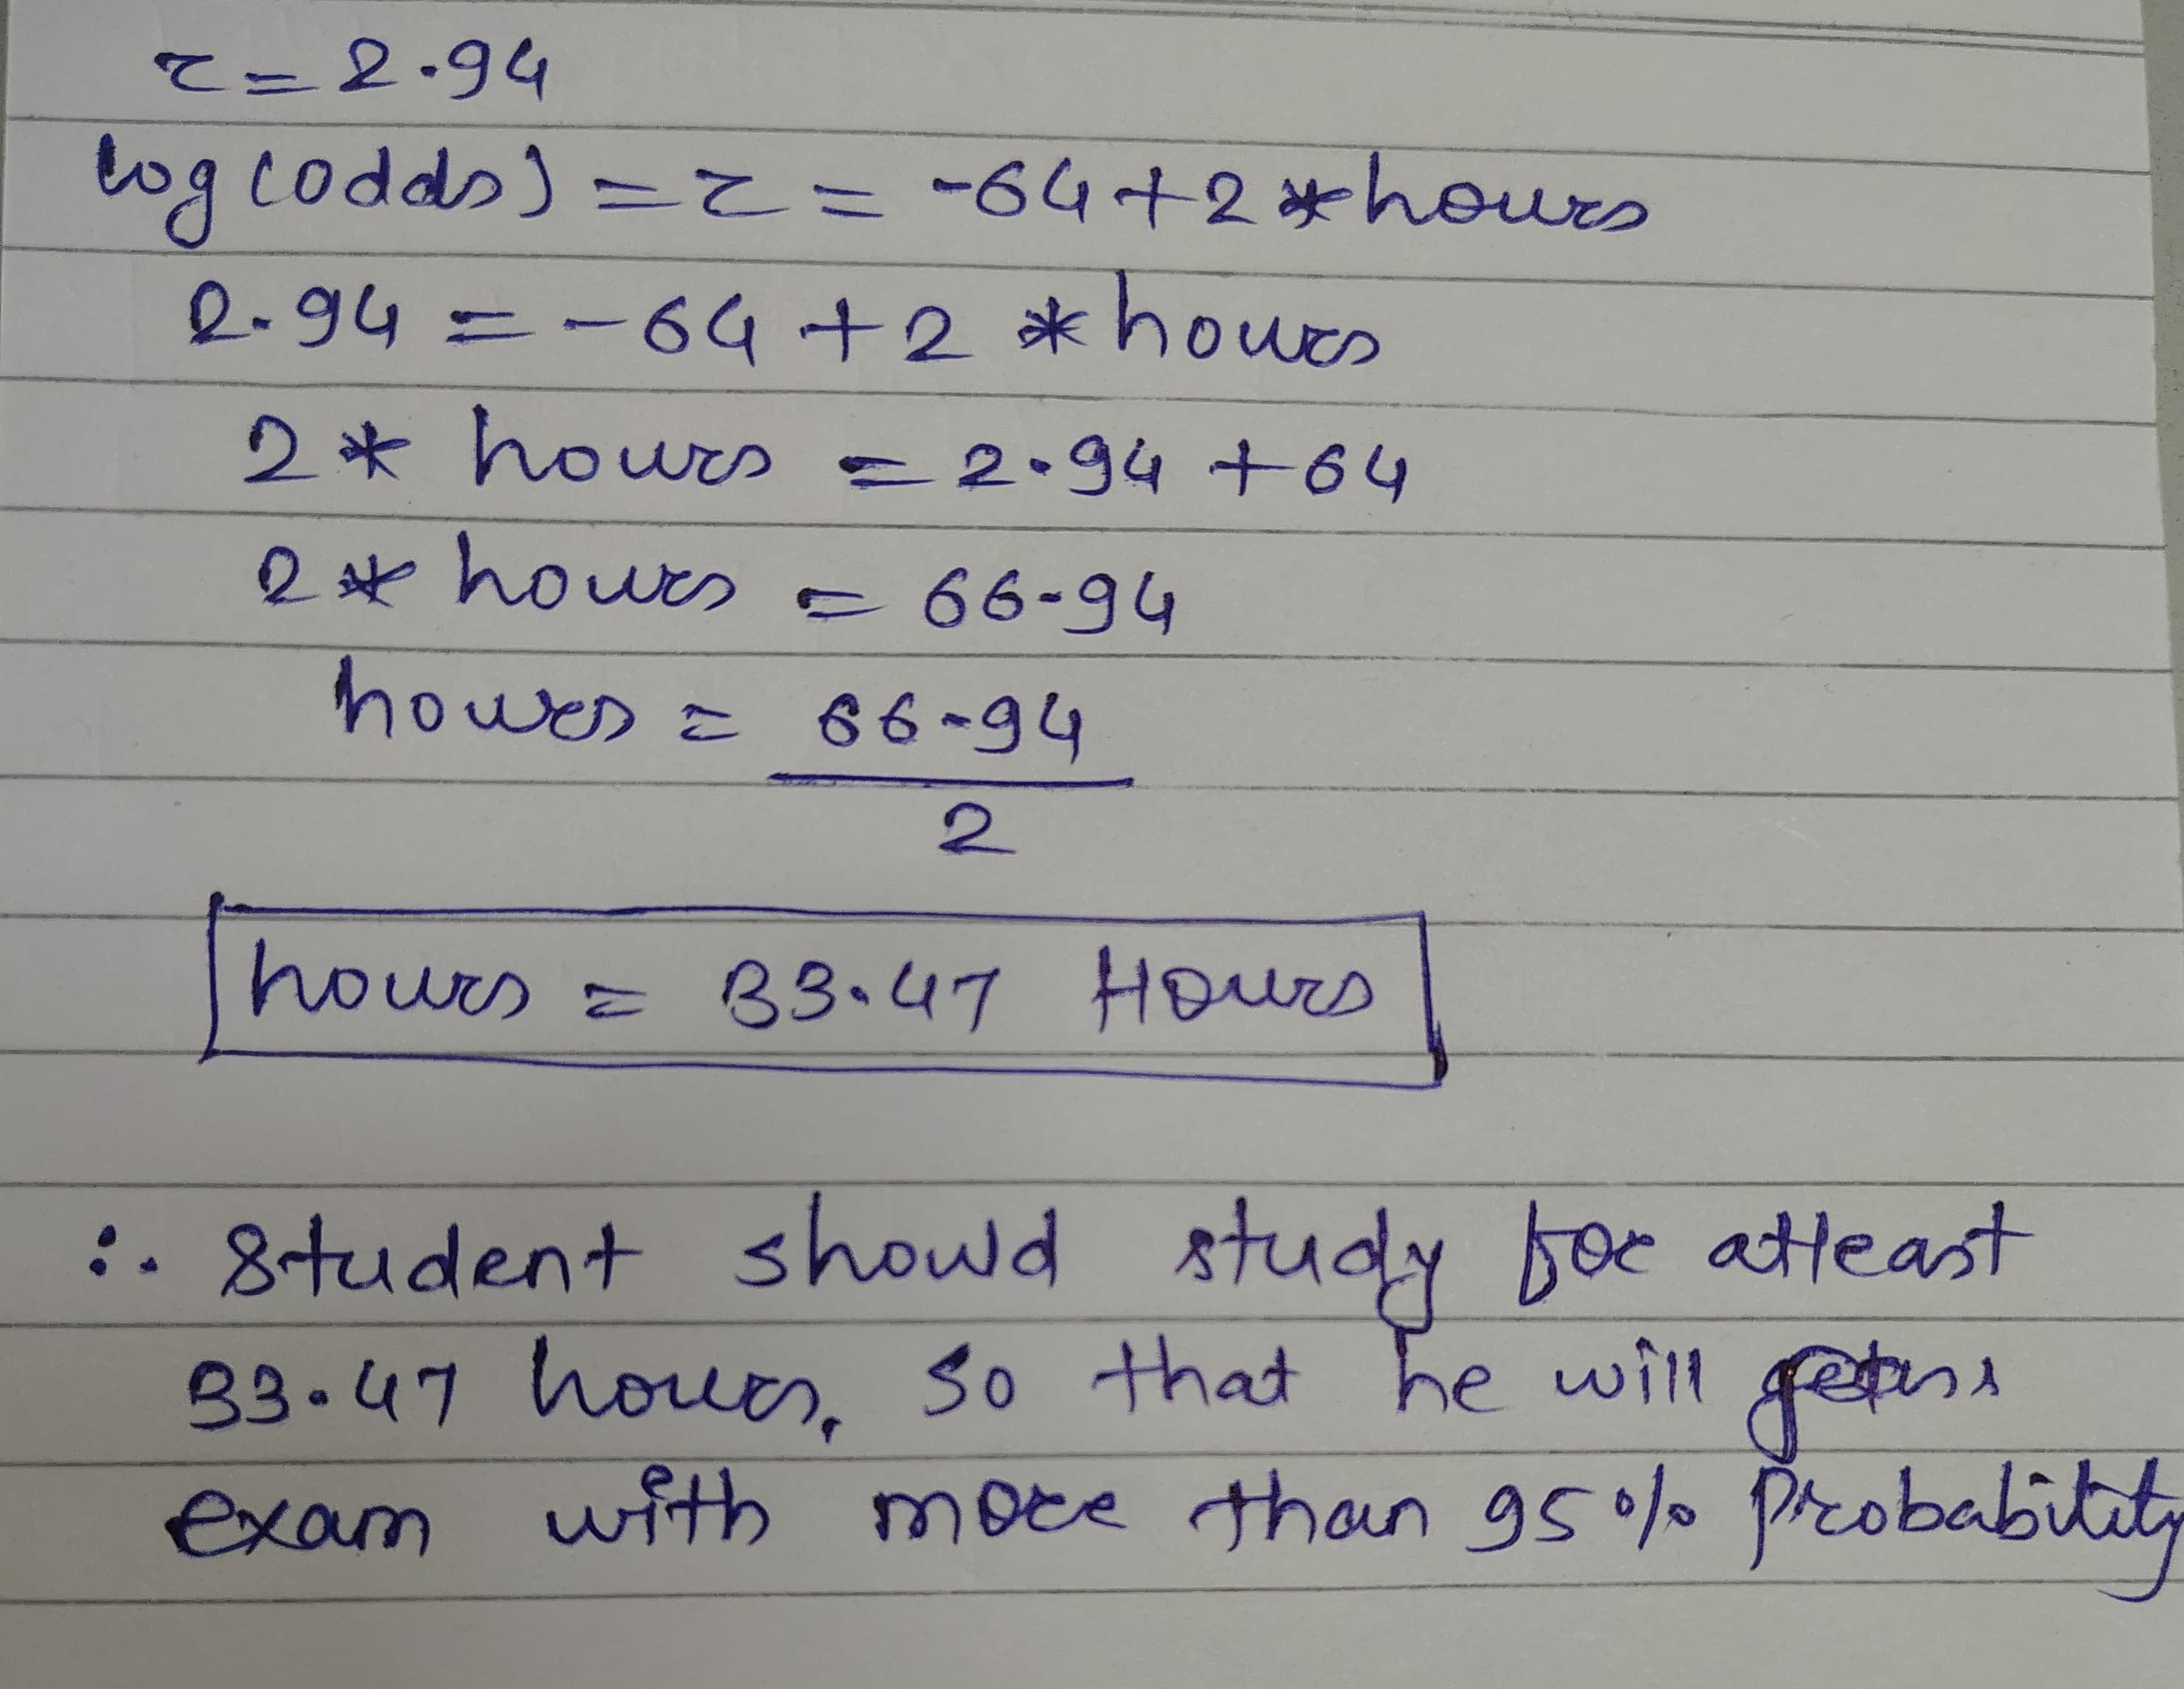 z = 2.94
log(odds) = z = -64 + 2 * hours
2.94 = -64 + 2 * hours
2 * hours = 2.94 + 64
2 * hours = 66.94
hours = 66.94
2
hours = 33.47 Hours
∴ Student should study for atleast
33.47 hours, so that he will
exam with more than 95% probability